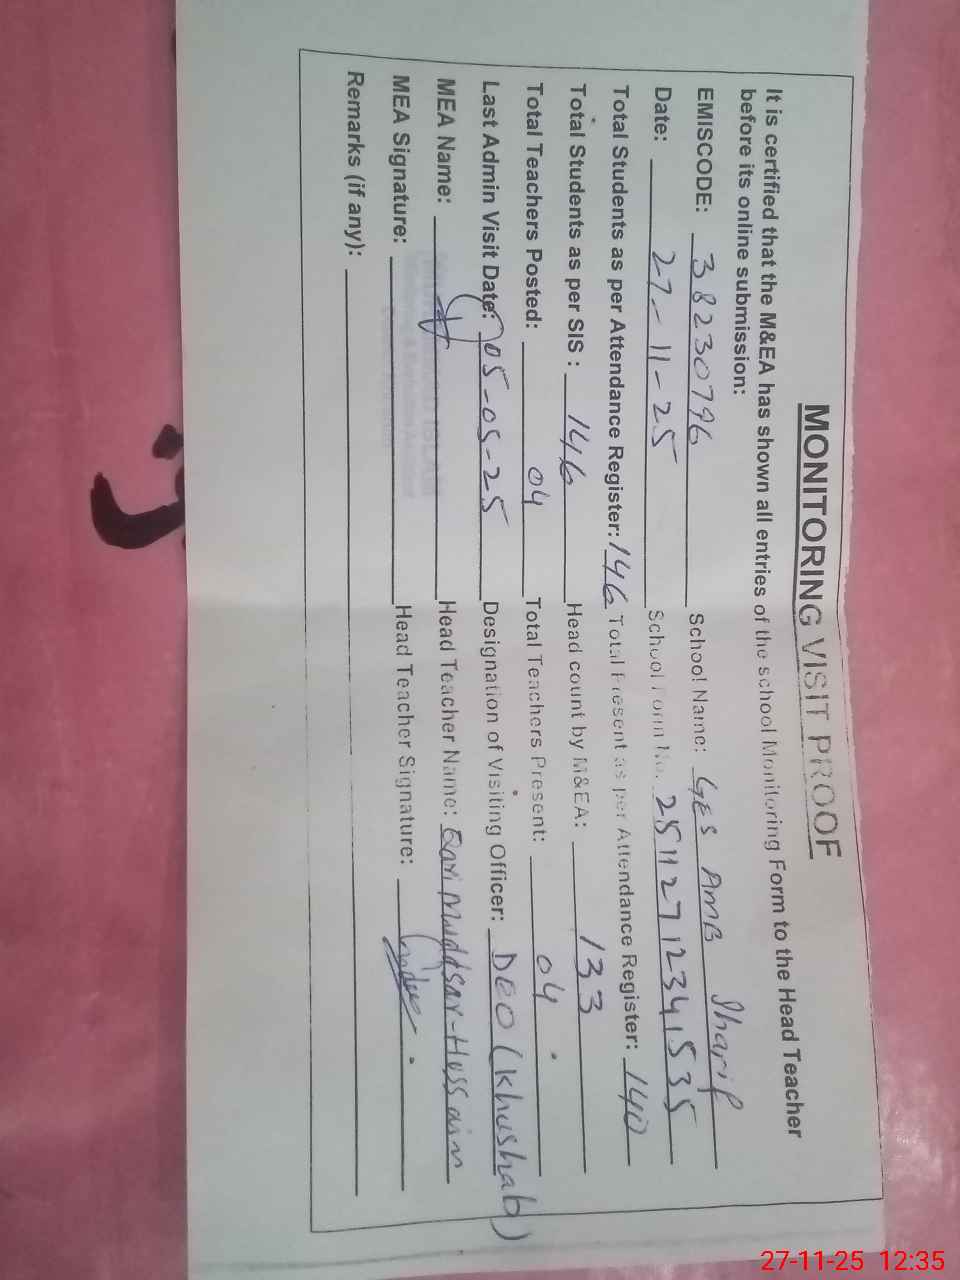 MONITORING VISIT PROOF
It is certified that the M&EA has shown all entries of the school Monitoring Form to the Head Teacher
before its online submission:
EMISCODE: 38230796 School Name: GES AMB Sharif
Date: 27-11-25 School Form No. 25112712341535
Total Students as per Attendance Register: 146 Total Present as per Attendance Register: 140
Total Students as per SIS : 146 Head count by M&EA: 133
Total Teachers Posted: 04 Total Teachers Present: 04
Last Admin Visit Date: 05-05-25 Designation of Visiting Officer: DEO (Khushab)
MEA Name: Head Teacher Name: Qari Muddsar-Hussain
MEA Signature: Head Teacher Signature:
Remarks (if any):
27-11-25 12:35